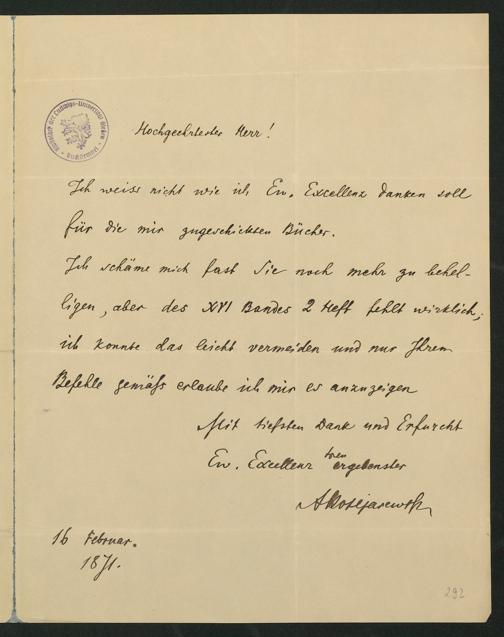 Hochgeehrtester Herr!
Ich weiss nicht wie ich Ew. Excellenz danken soll
für die mir zugeschickten Bücher.
Ich schäme mich fast Sie noch mehr zu behel-
ligen, aber des XVI Bandes 2 Heft fehlt wirklich;
ich konnte das leicht vermeiden und nur Ihrem
Befehle gemäss erlaube ich mir es anzuzeigen
Mit tiefsten Dank und Erfurcht
Ew. Excellenz treu ergebenster
16 Februar.
1871.
292